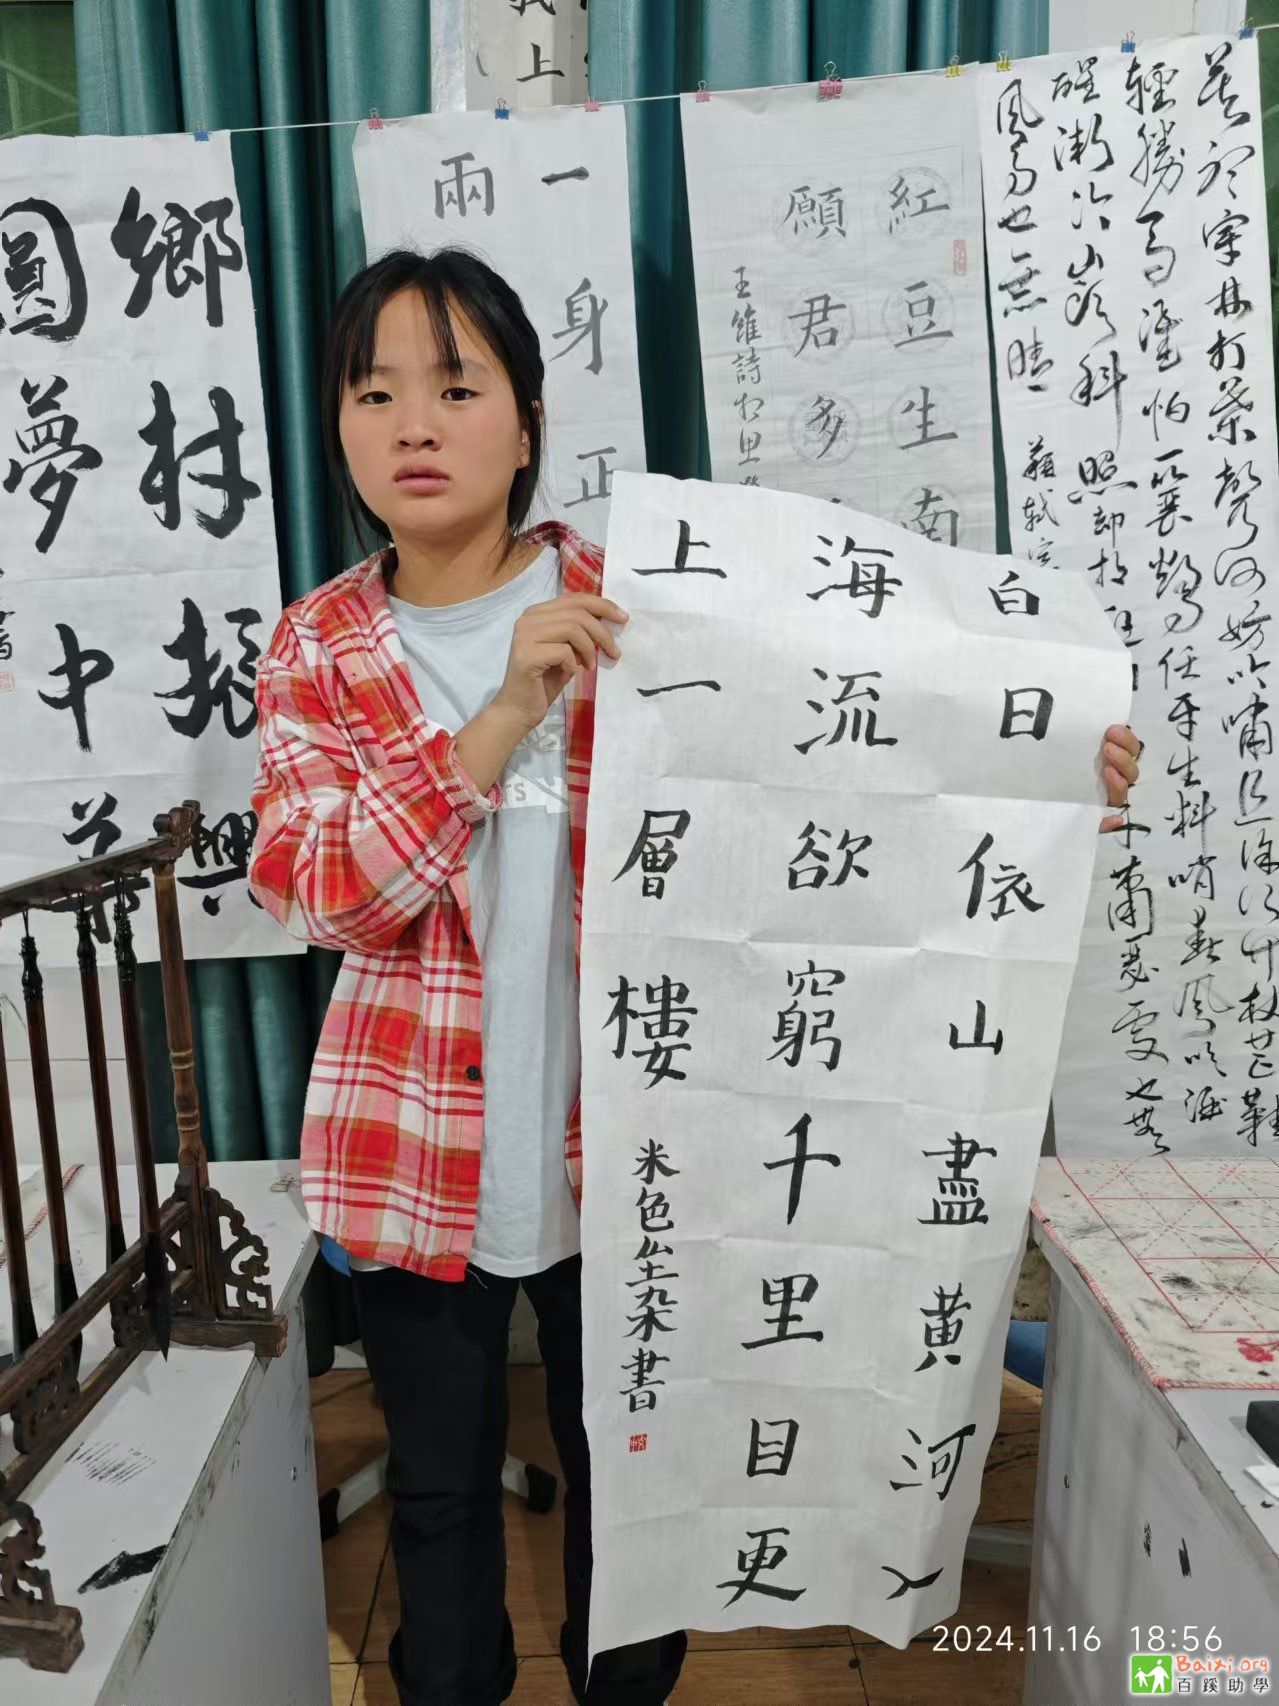 白日依山盡黃河入
海流欲窮千里目更
上一層樓
米色坌朵書
鄉村振興
圓夢中華
一身正
兩
紅豆生南
願君多
王維詩
莫听穿林打葉聲何妨吟嘯且徐行竹杖芒鞋
輕勝馬誰怕一蓑煙雨任平生料峭春風吹酒
醒漸冷山頭斜照却相迎
蕭瑟處也無
風雨也無晴
蘇軾
上
2024.11.16 18:56
Baixi.org
百蹊助學